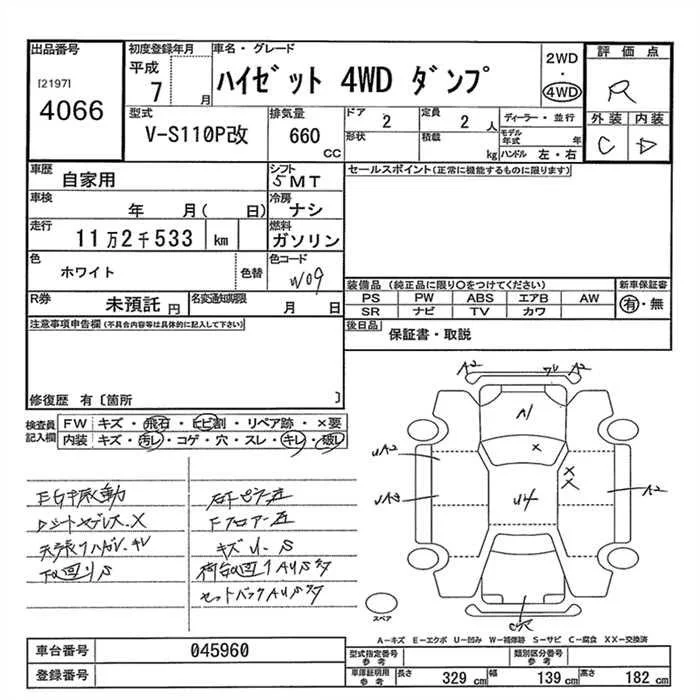 出品番号
[2197]
4066
初度登録年月
平成
7 月
車名・グレード
ハイゼット 4WD ダンプ
2WD
・
4WD
評価点
R
外装 内装
C D
型式
V-S110P改
排気量
660
CC
ドア
2
定員
2 人
形状
積載
kg
ディーラー・並行
モデル
年式 年
ハンドル 左・右
車歴
自家用
シフト
5MT
車検
年 月( 日)
冷房
ナシ
走行
11万2千533 km
燃料
ガソリン
色
ホワイト
色替
色コード
W09
R券
未預託 円
名変通知期限
月 日
セールスポイント(正常に機能するものに限ります)
装備品 (純正品に限り○をつけてください)
PS PW ABS エアB AW
SR ナビ TV カワ
新車保証書
有・無
後日品
保証書・取説
注意事項申告欄(不具合内容等は具体的に記入して下さい)
修復歴 有〔箇所 〕
検査員
記入欄
FW キズ・飛石・ヒビ割・リペア跡・×要
内装 キズ・汚レ・コゲ・穴・スレ・キレ・破レ
E/G振動
天張りハガレ・キレ
下回りS
Fフロアー
キズ U S
A2
A2
A1
×
U4
A2
×
×
スペア
A−キズ E−エクボ U−凹み W−補修跡 S−サビ C−腐食 XX−交換済
車台番号
045960
登録番号
型式指定番号
参考
類別区分番号
参考
車庫証明用
参考
長さ 329 cm 幅 139 cm 高さ 182 cm